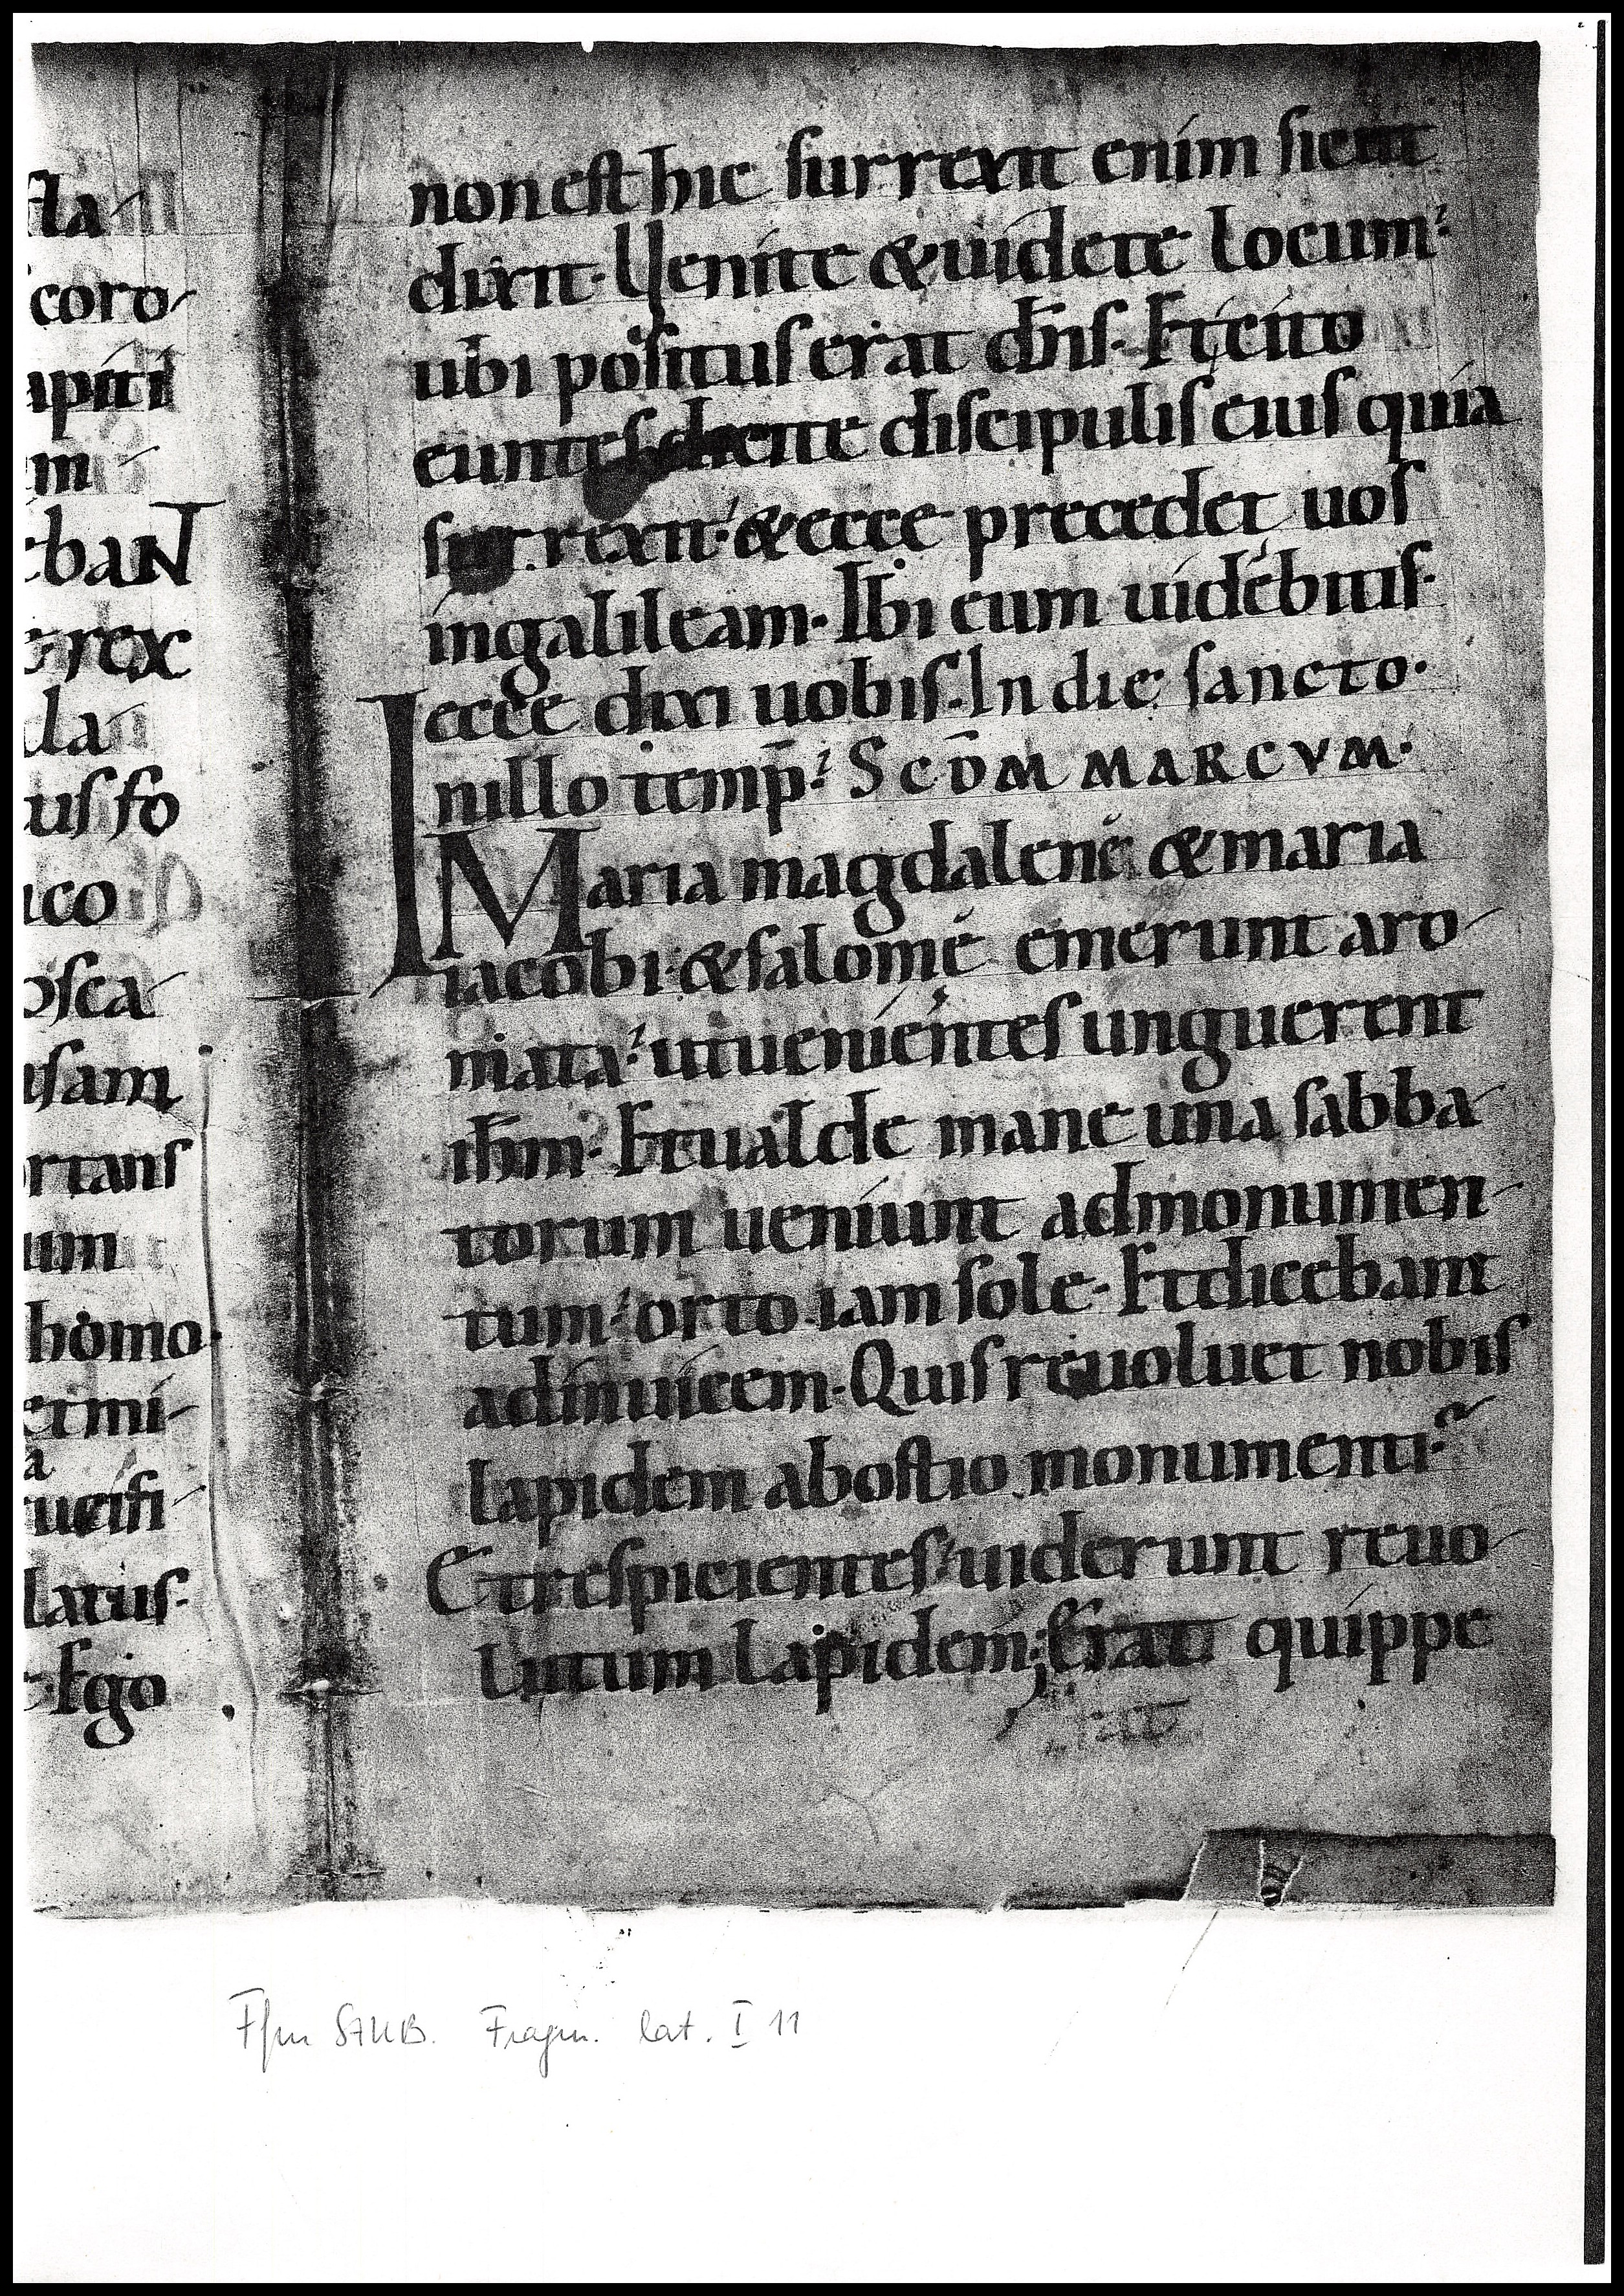 fla-
coro-
apiti
m-
ebaNT
rex
da-
us fo
uco
osca-
usam
ortans
um
homo.
et mi-
a
rucifi-
latus.
Ego
non est hic surrexit enim sicut
dixit. Venite & uidete locum
ubi positus erat dn̄s. Et cito
euntes dicite discipulis eius quia
surrexit. & ecce precedet uos
ingalileam. Ibi eum uidebitis.
ecce dixi uobis. In die sancto.
In illo temp̄. Scd̄m MARCVM.
Maria magdalene & maria
iacobi. & salome emerunt aro-
mata. ut uenientes unguerent
ih̄m. Et ualde mane una sabba-
torum ueniunt admonumen-
tum. orto iam sole. Et dicebant
adinuicem. Quis reuoluet nobis
lapidem abostio monumenti.
Et respicientes. uiderunt reuo-
lutum lapidem; Erat quippe
Ffm StUB. Fragm. lat. I 11